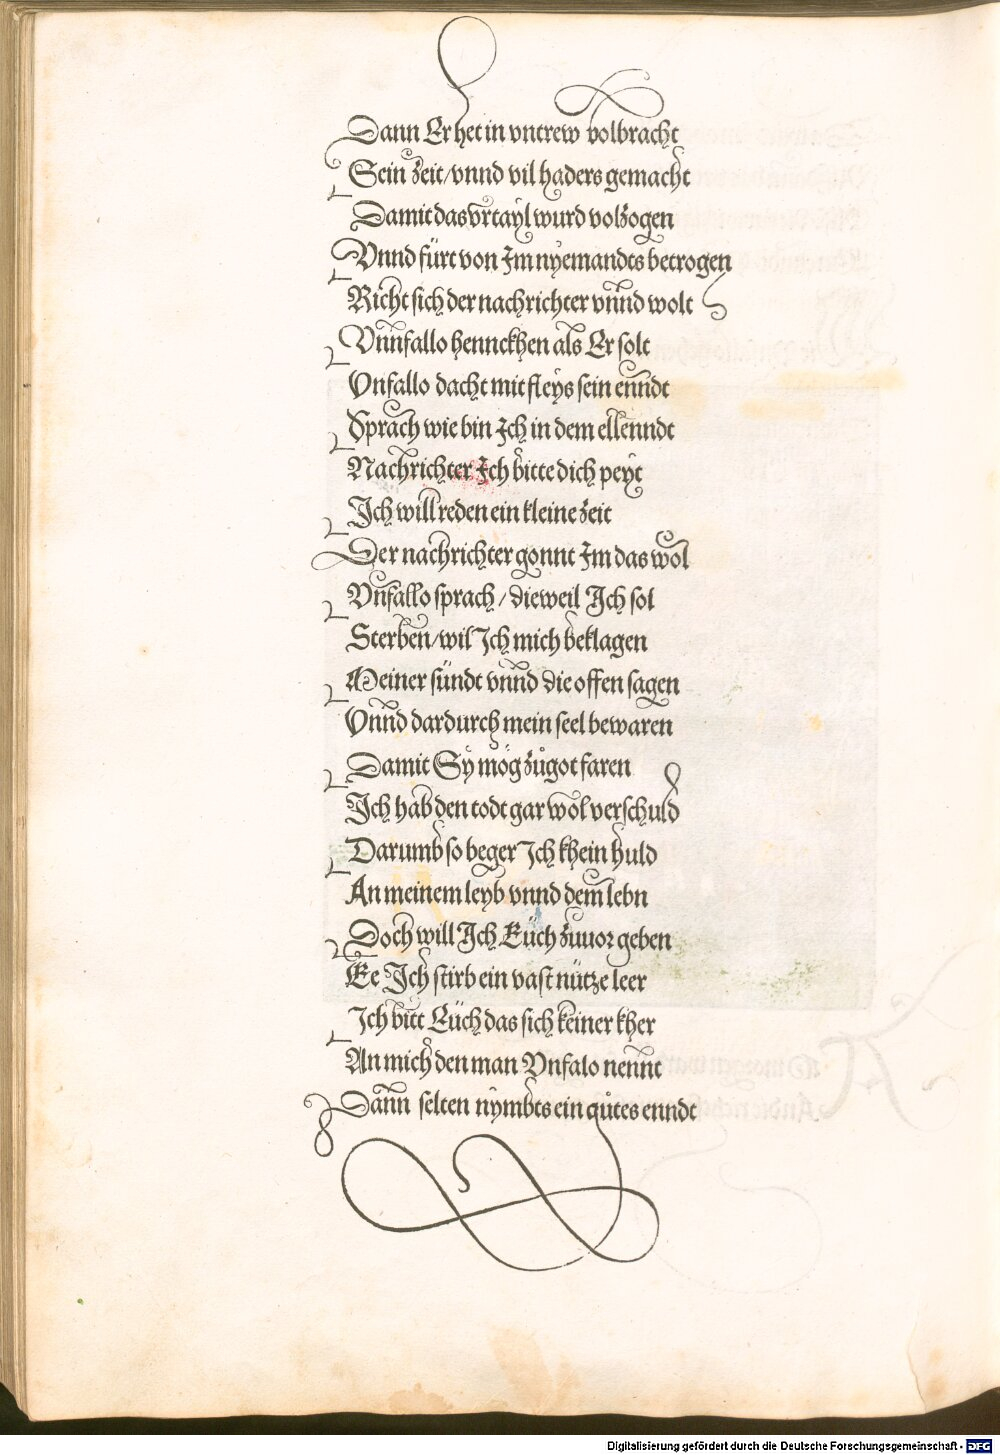 Dann Er het in vntrew volbracht
Sein zeit/vnnd vil haders gemacht
Damit das vrtayl wurd volzogen
Vnnd fürt von Im nyemandts betrogen
Richt sich der nachrichter vnnd wolt
Vnnfallo hennckhen als Er solt
Vnfallo dacht mit fleys sein enndt
Sprach wie bin Ich in dem ellenndt
Nachrichter Ich bitte dich peyt
Ich will reden ein kleine zeit
Der nachrichter gonnt Im das wol
Vnfallo sprach/dieweil Ich sol
Sterben/wil Ich mich beklagen
Meiner sündt vnnd die offen sagen
Vnnd dardurch mein seel bewaren
Damit Sy mög zůgot faren
Ich hab den todt gar wol verschuld
Darumb so beger Ich khein huld
An meinem leyb vnnd dem lebn
Doch will Ich Eüch zuuor geben
Ee Ich stirb ein vast nütze leer
Ich bitt Eüch das sich keiner kher
An mich den man Vnfalo nennt
Dann selten nymbts ein gůtes enndt
Digitalisierung gefördert durch die Deutsche Forschungsgemeinschaft - DFG